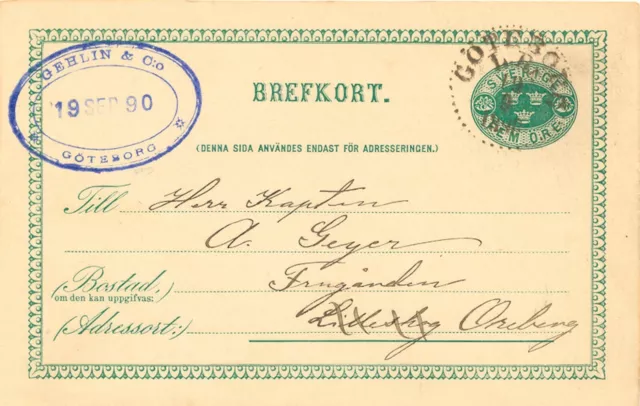 GEHLIN & C:o
19 SEP 90
GÖTEBORG
GÖTEBOR
SVERIGE
FEM ÖRE
BREFKORT.
(DENNA SIDA ANVÄNDES ENDAST FÖR ADRESSERINGEN.)
Till Herr Kapten
A. Geyer
(Bostad,
om den kan uppgifvas:)
(Adressort:)